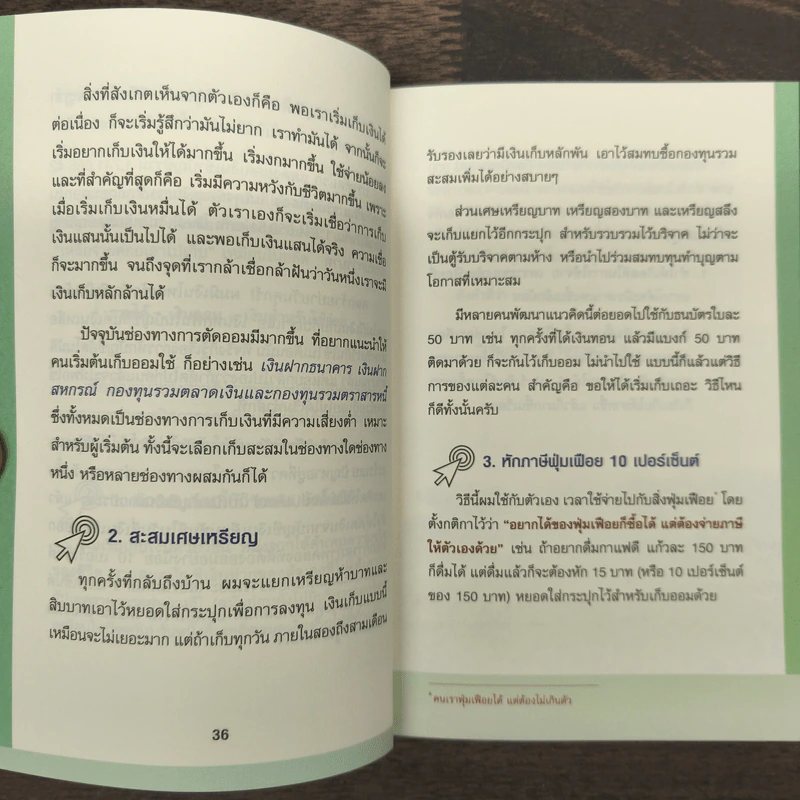 สิ่งที่สังเกตเห็นจากตัวเองก็คือ พอเราเริ่มเก็บเงินได้
ต่อเนื่อง ก็จะเริ่มรู้สึกว่ามันไม่ยาก เราทำมันได้ จากนั้นก็จะ
เริ่มอยากเก็บเงินให้ได้มากขึ้น เริ่มงกมากขึ้น ใช้จ่ายน้อยลง
และที่สำคัญที่สุดก็คือ เริ่มมีความหวังกับชีวิตมากขึ้น เพราะ
เมื่อเริ่มเก็บเงินหมื่นได้ ตัวเราเองก็จะเริ่มเชื่อว่าการเก็บ
เงินแสนนั้นเป็นไปได้ และพอเก็บเงินแสนได้จริง ความเชื่อ
ก็จะมากขึ้น จนถึงจุดที่เรากล้าเชื่อกล้าฝันว่าวันหนึ่งเราจะมี
เงินเก็บหลักล้านได้
ปัจจุบันช่องทางการตัดออมมีมากขึ้น ที่อยากแนะนำให้
คนเริ่มต้นเก็บออมใช้ ก็อย่างเช่น เงินฝากธนาคาร เงินฝาก
สหกรณ์ กองทุนรวมตลาดเงินและกองทุนรวมตราสารหนี้
ซึ่งทั้งหมดเป็นช่องทางการเก็บเงินที่มีความเสี่ยงต่ำ เหมาะ
สำหรับผู้เริ่มต้น ทั้งนี้จะเลือกเก็บสะสมในช่องทางใดช่องทาง
หนึ่ง หรือหลายช่องทางผสมกันก็ได้
2. สะสมเศษเหรียญ
ทุกครั้งที่กลับถึงบ้าน ผมจะแยกเหรียญห้าบาทและ
สิบบาทเอาไว้หยอดใส่กระปุกเพื่อการลงทุน เงินเก็บแบบนี้
เหมือนจะไม่เยอะมาก แต่ถ้าเก็บทุกวัน ภายในสองถึงสามเดือน
36
รับรองเลยว่ามีเงินเก็บหลักพัน เอาไว้สมทบซื้อกองทุนรวม
สะสมเพิ่มได้อย่างสบายๆ
ส่วนเศษเหรียญบาท เหรียญสองบาท และเหรียญสลึง
จะเก็บแยกไว้อีกกระปุก สำหรับรวบรวมไว้บริจาค ไม่ว่าจะ
เป็นตู้รับบริจาคตามห้าง หรือนำไปร่วมสมทบทุนทำบุญตาม
โอกาสที่เหมาะสม
มีหลายคนพัฒนาแนวคิดนี้ต่อยอดไปใช้กับธนบัตรใบละ
50 บาท เช่น ทุกครั้งที่ได้เงินทอน แล้วมีแบงก์ 50 บาท
ติดมาด้วย ก็จะกันไว้เก็บออม ไม่นำไปใช้ แบบนี้ก็แล้วแต่วิธี
การของแต่ละคน สำคัญคือ ขอให้ได้เริ่มเก็บเถอะ วิธีไหน
ก็ดีทั้งนั้นครับ
3. หักภาษีฟุ่มเฟือย 10 เปอร์เซ็นต์
วิธีนี้ผมใช้กับตัวเอง เวลาใช้จ่ายไปกับสิ่งฟุ่มเฟือย* โดย
ตั้งกติกาไว้ว่า “อยากได้ของฟุ่มเฟือยก็ซื้อได้ แต่ต้องจ่ายภาษี
ให้ตัวเองด้วย” เช่น ถ้าอยากดื่มกาแฟดี แก้วละ 150 บาท
ก็ดื่มได้ แต่ดื่มแล้วก็จะต้องหัก 15 บาท (หรือ 10 เปอร์เซ็นต์
ของ 150 บาท) หยอดใส่กระปุกไว้สำหรับเก็บออมด้วย
*คนเราฟุ่มเฟือยได้ แต่ต้องไม่เกินตัว